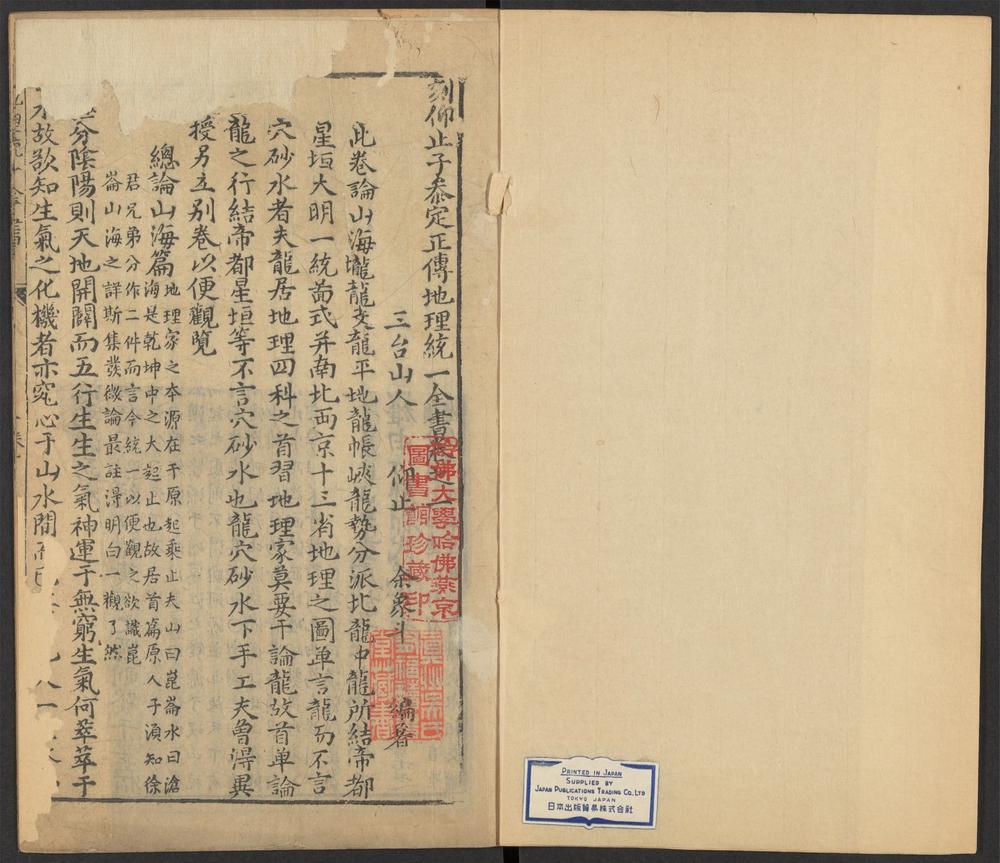 刻仰止子叅定正傳地理統一全書卷之一
三台山人 仰止 余象斗 編著
此卷論山海壠龍支龍平地龍帳峽龍勢分派北龍中龍所結帝都
星垣大明一統啚式并南北兩京十三省地理之圖单言龍而不言
穴砂水者夫龍居地理四科之首習地理家莫要于論龍故首单論
龍之行結帝都星垣等不言穴砂水也龍穴砂水下手工夫曾淂異
授另立别卷以便觀覽
總論山海篇
地理家之本源在于原起乘止夫山曰崑崙水曰滄
海是乾坤中之大起止也故居首篇原人子湏知徐
君兄弟分作二件而言今統一以便觀之欲識崑
崙山海之詳斯集發微論最註淂明白一觀了然
分陰陽則天地開闢而五行生生之氣神運于無窮生氣何萃萃于
故欲知生氣之化機者亦究心于山水間
哈佛大學哈佛燕京
圖書館珍藏印
PRINTED IN JAPAN
SUPPLIED BY
JAPAN PUBLICATIONS TRADING CO., LTD
TOKYO JAPAN
日本出版貿易株式会社